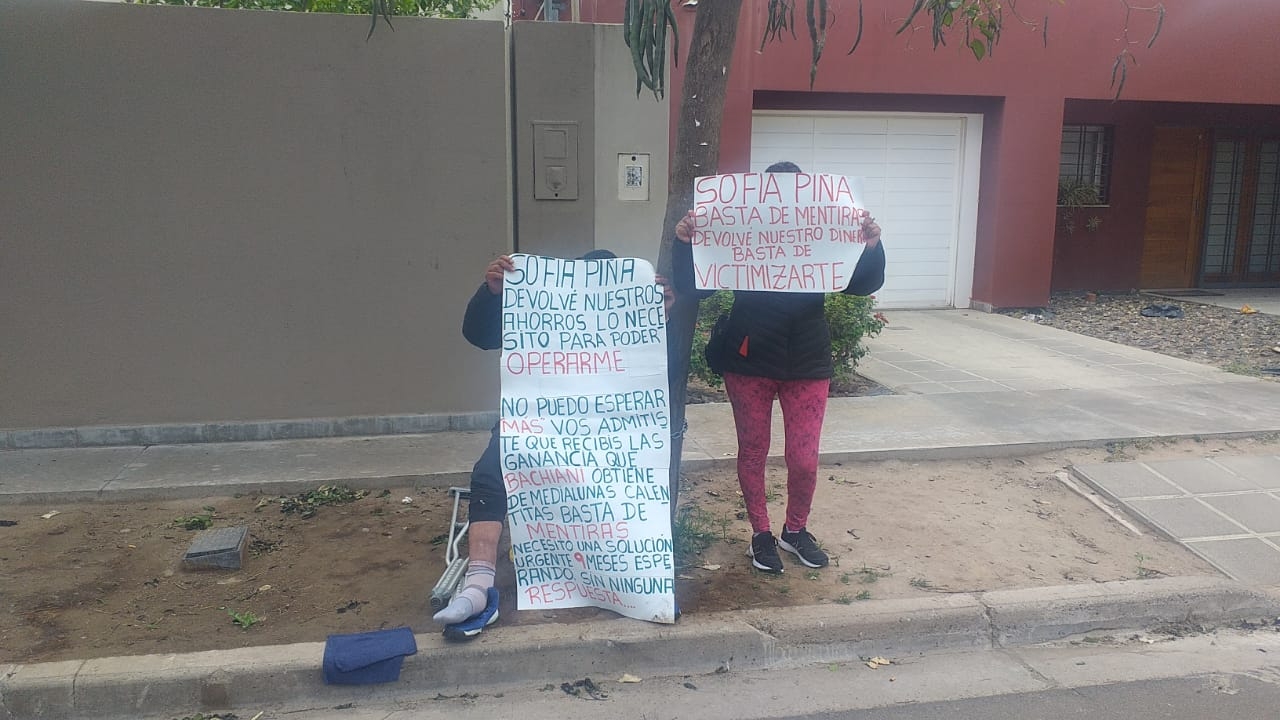 SOFIA PIÑA
DEVOLVÉ NUESTROS
AHORROS LO NECE
SITO PARA PODER
OPERARME
NO PUEDO ESPERAR
MAS VOS ADMITIS
TE QUE RECIBIS LAS
GANANCIA QUE
BACHIANI OBTIENE
DE MEDIALUNAS CALEN
TITAS BASTA DE
MENTIRAS
NECESITO UNA SOLUCION
URGENTE 9 MESES ESPE
RANDO SIN NINGUNA
RESPUESTA....
SOFIA PIÑA
BASTA DE MENTIRAS
DEVOLVÉ NUESTRO DINER
BASTA DE
VICTIMIZARTE